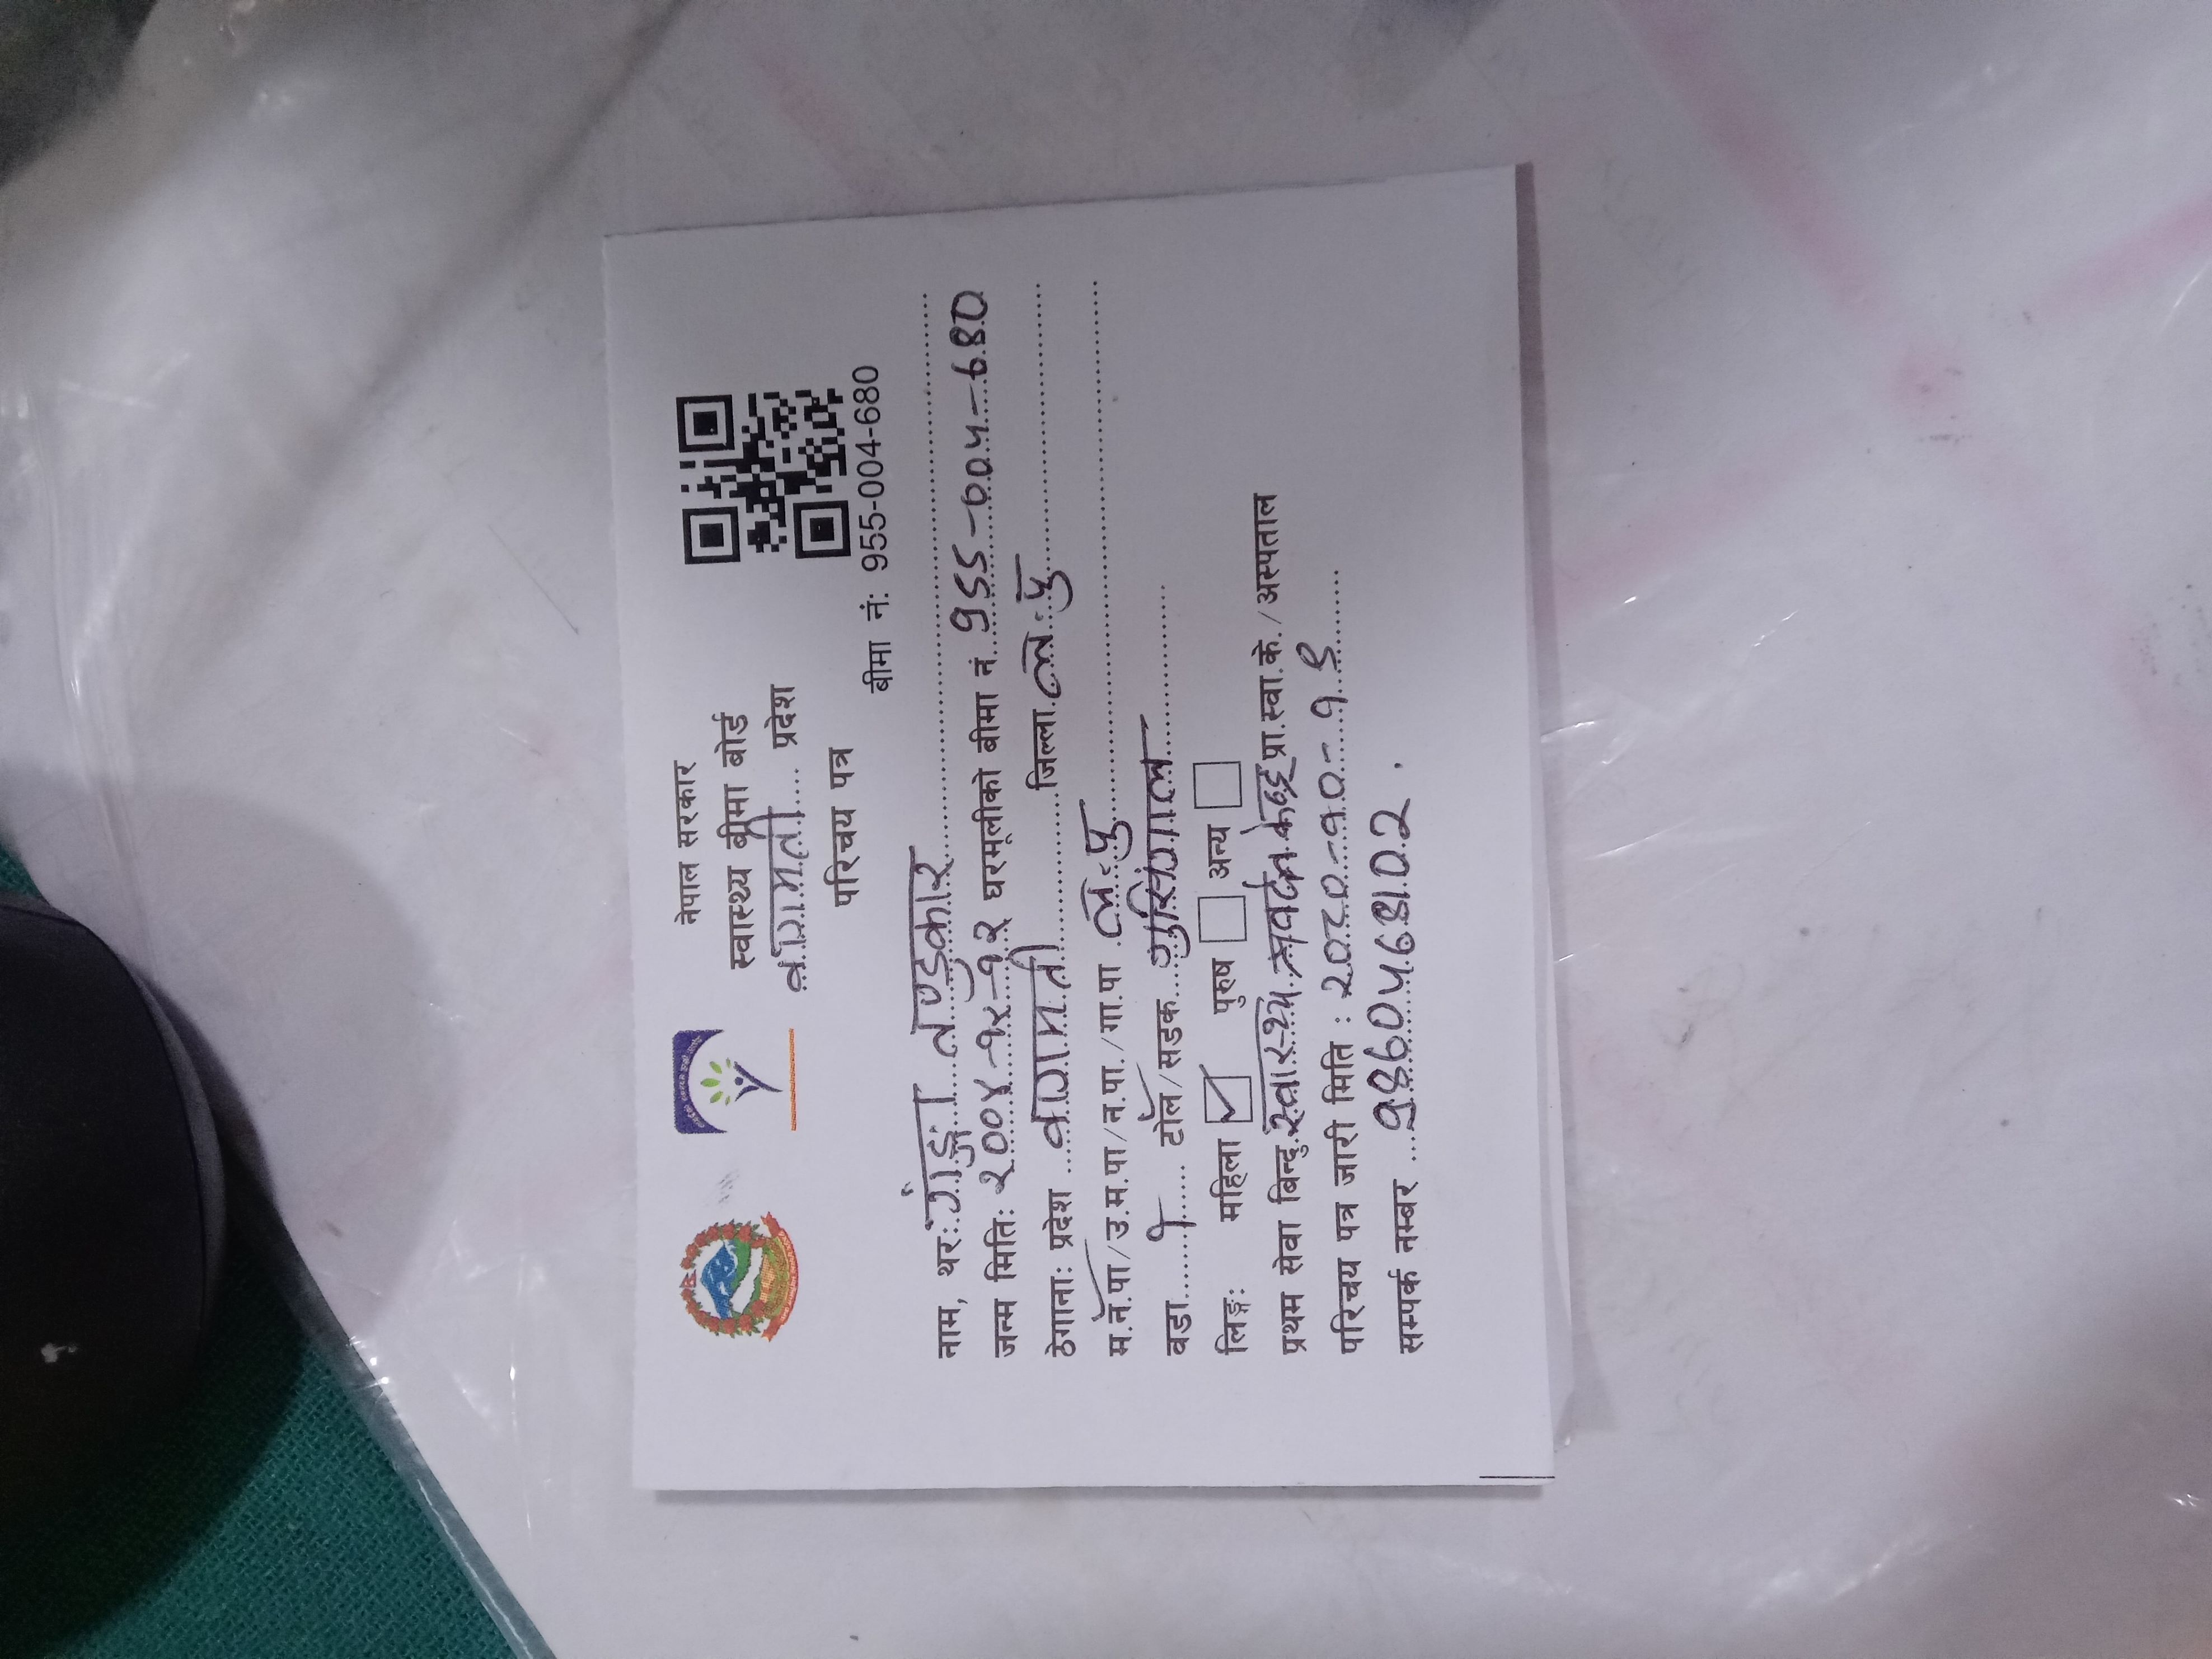 नेपाल सरकार
स्वास्थ्य बीमा बोर्ड
वागमती प्रदेश
परिचय पत्र
बीमा नं: 955-004-680
नाम, थर: गंङ्गा तण्डुकार
जन्म मिति: २००४-१२-१२ घरमूलीको बीमा नं. 955-004-680
ठेगाना: प्रदेश वागमती जिल्ला ल.पु
म.न.पा/उ.म.पा/न.पा./गा.पा ल.पु
वडा १ टोल/सडक गुसिंगाल
लिङ्ग: महिला ✓ पुरुष अन्य
प्रथम सेवा बिन्दु स्वास्थ्य प्रवर्दन केन्द्र प्रा.स्वा.के./अस्पताल
परिचय पत्र जारी मिति : २०८०-१०-१९
सम्पर्क नम्बर 9860468102